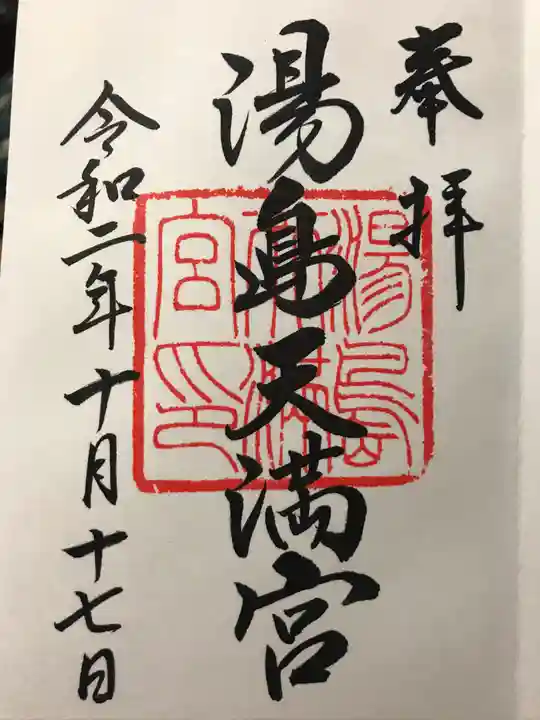 奉拝
湯島天満宮
湯島天満宮印
令和二年十月十七日